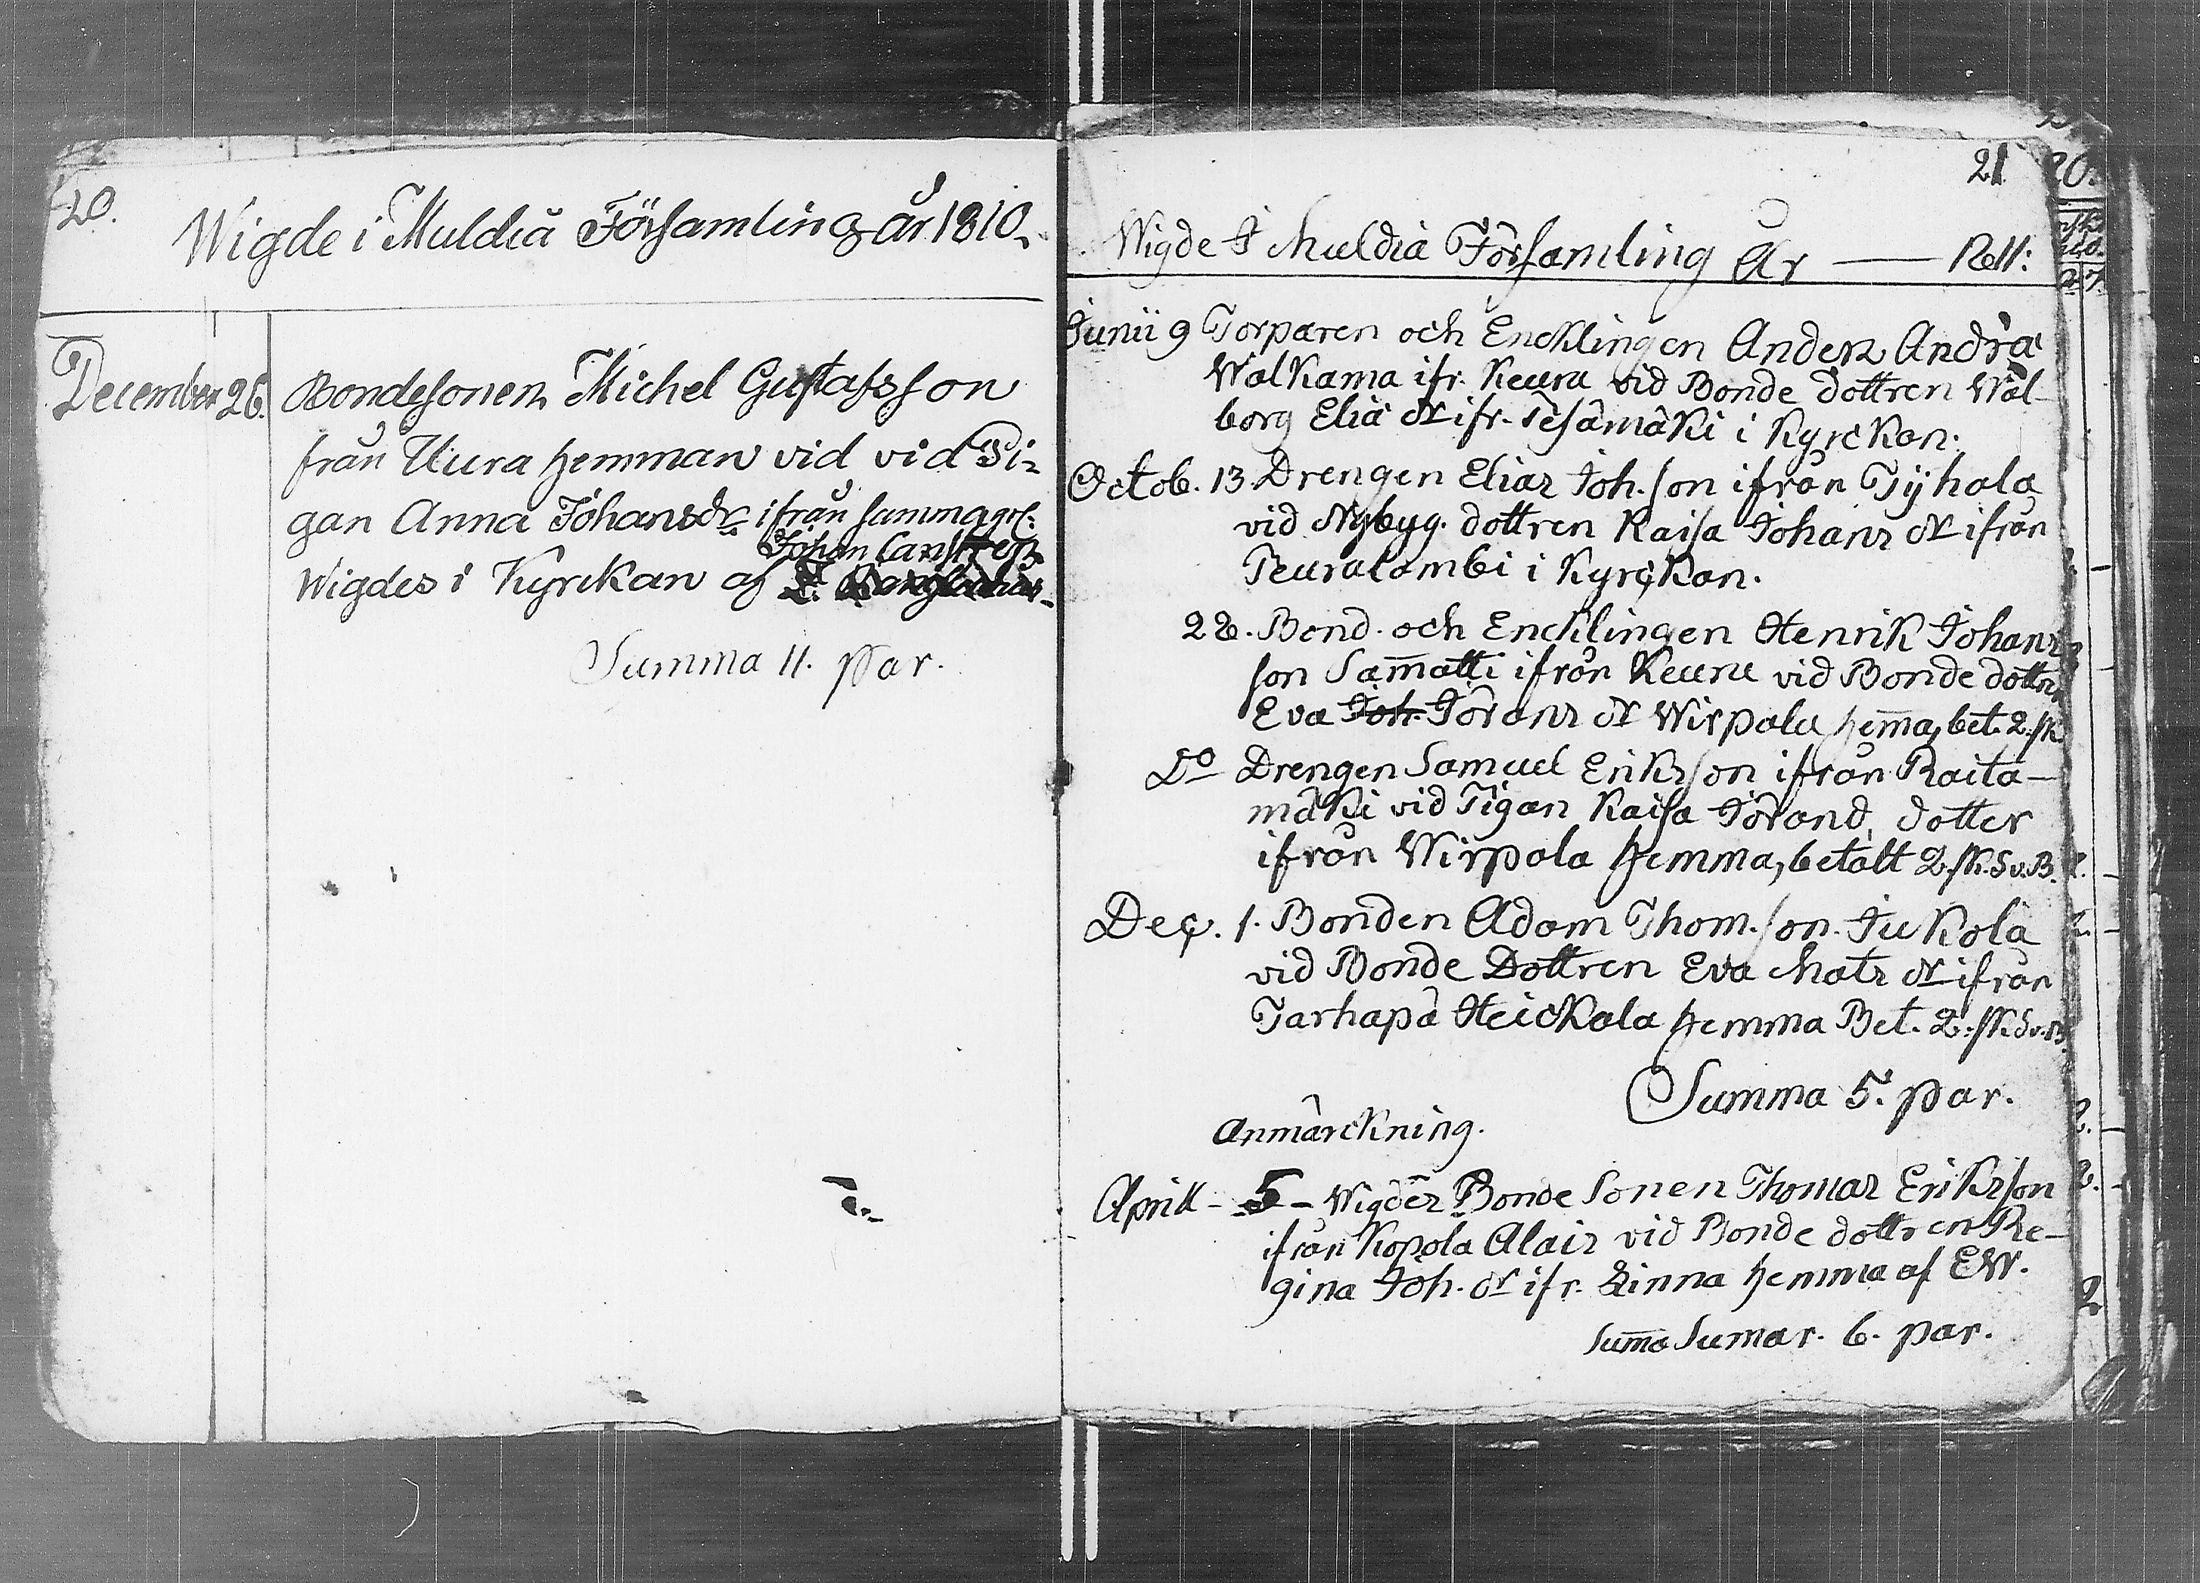 20.
Wigde i Muldiä Församling år 1810.
December 26. Bondesonen Michel Gustafsson
från Uura hemman vid vid Pi=
gan Anna Johansdr ifrån samma gål:
Johan Canstren
Wigdes i Kyrckan af
Summa 11. par.
21
Wigde I Muldiä Församling År — 1811:
Junii 9 Torparen och Encklingen Anders Andrä
Walkama ifr. Keuru vid Bonde dottren Wal-
borg Eliä dr ifr. Pesämäki i Kyrckan.
Octob. 13. Drengen Elias Joh. son ifrån Tyhala
vid Nybyg. dottren Kaisa Johans dr ifrån
Peuralambi i Kyrckan.
22. Bond. och Encklingen Henrik Johans
son Sam̄atti ifrån Keuru vid Bonde dottren
Eva Joh. Jörans dr Wirpala hem̄a, bet. 2. sk
Do Drengen Samuel Erikson ifrån Raita-
mäki vid Pigan Kaisa Jörans dotter
ifrån Wirpala hemma, betalt 2. sk. Sv. B.
Dec. 1. Bonden Adam Thom. son Jukola
vid Bonde Dottren Eva Mats dr ifrån
Tarhapä Heickala hemma Bet. 2. sk. Sv. B.
Summa 5. par.
Anmärckning.
April - 5 - Wigdes Bonde Sonen Thomas Erikson
ifrån Kopola Alais vid Bonde dottren Re-
gina Joh. dr ifr. Kinna hemma af EW.
Sum̄a Sumar. 6. par.